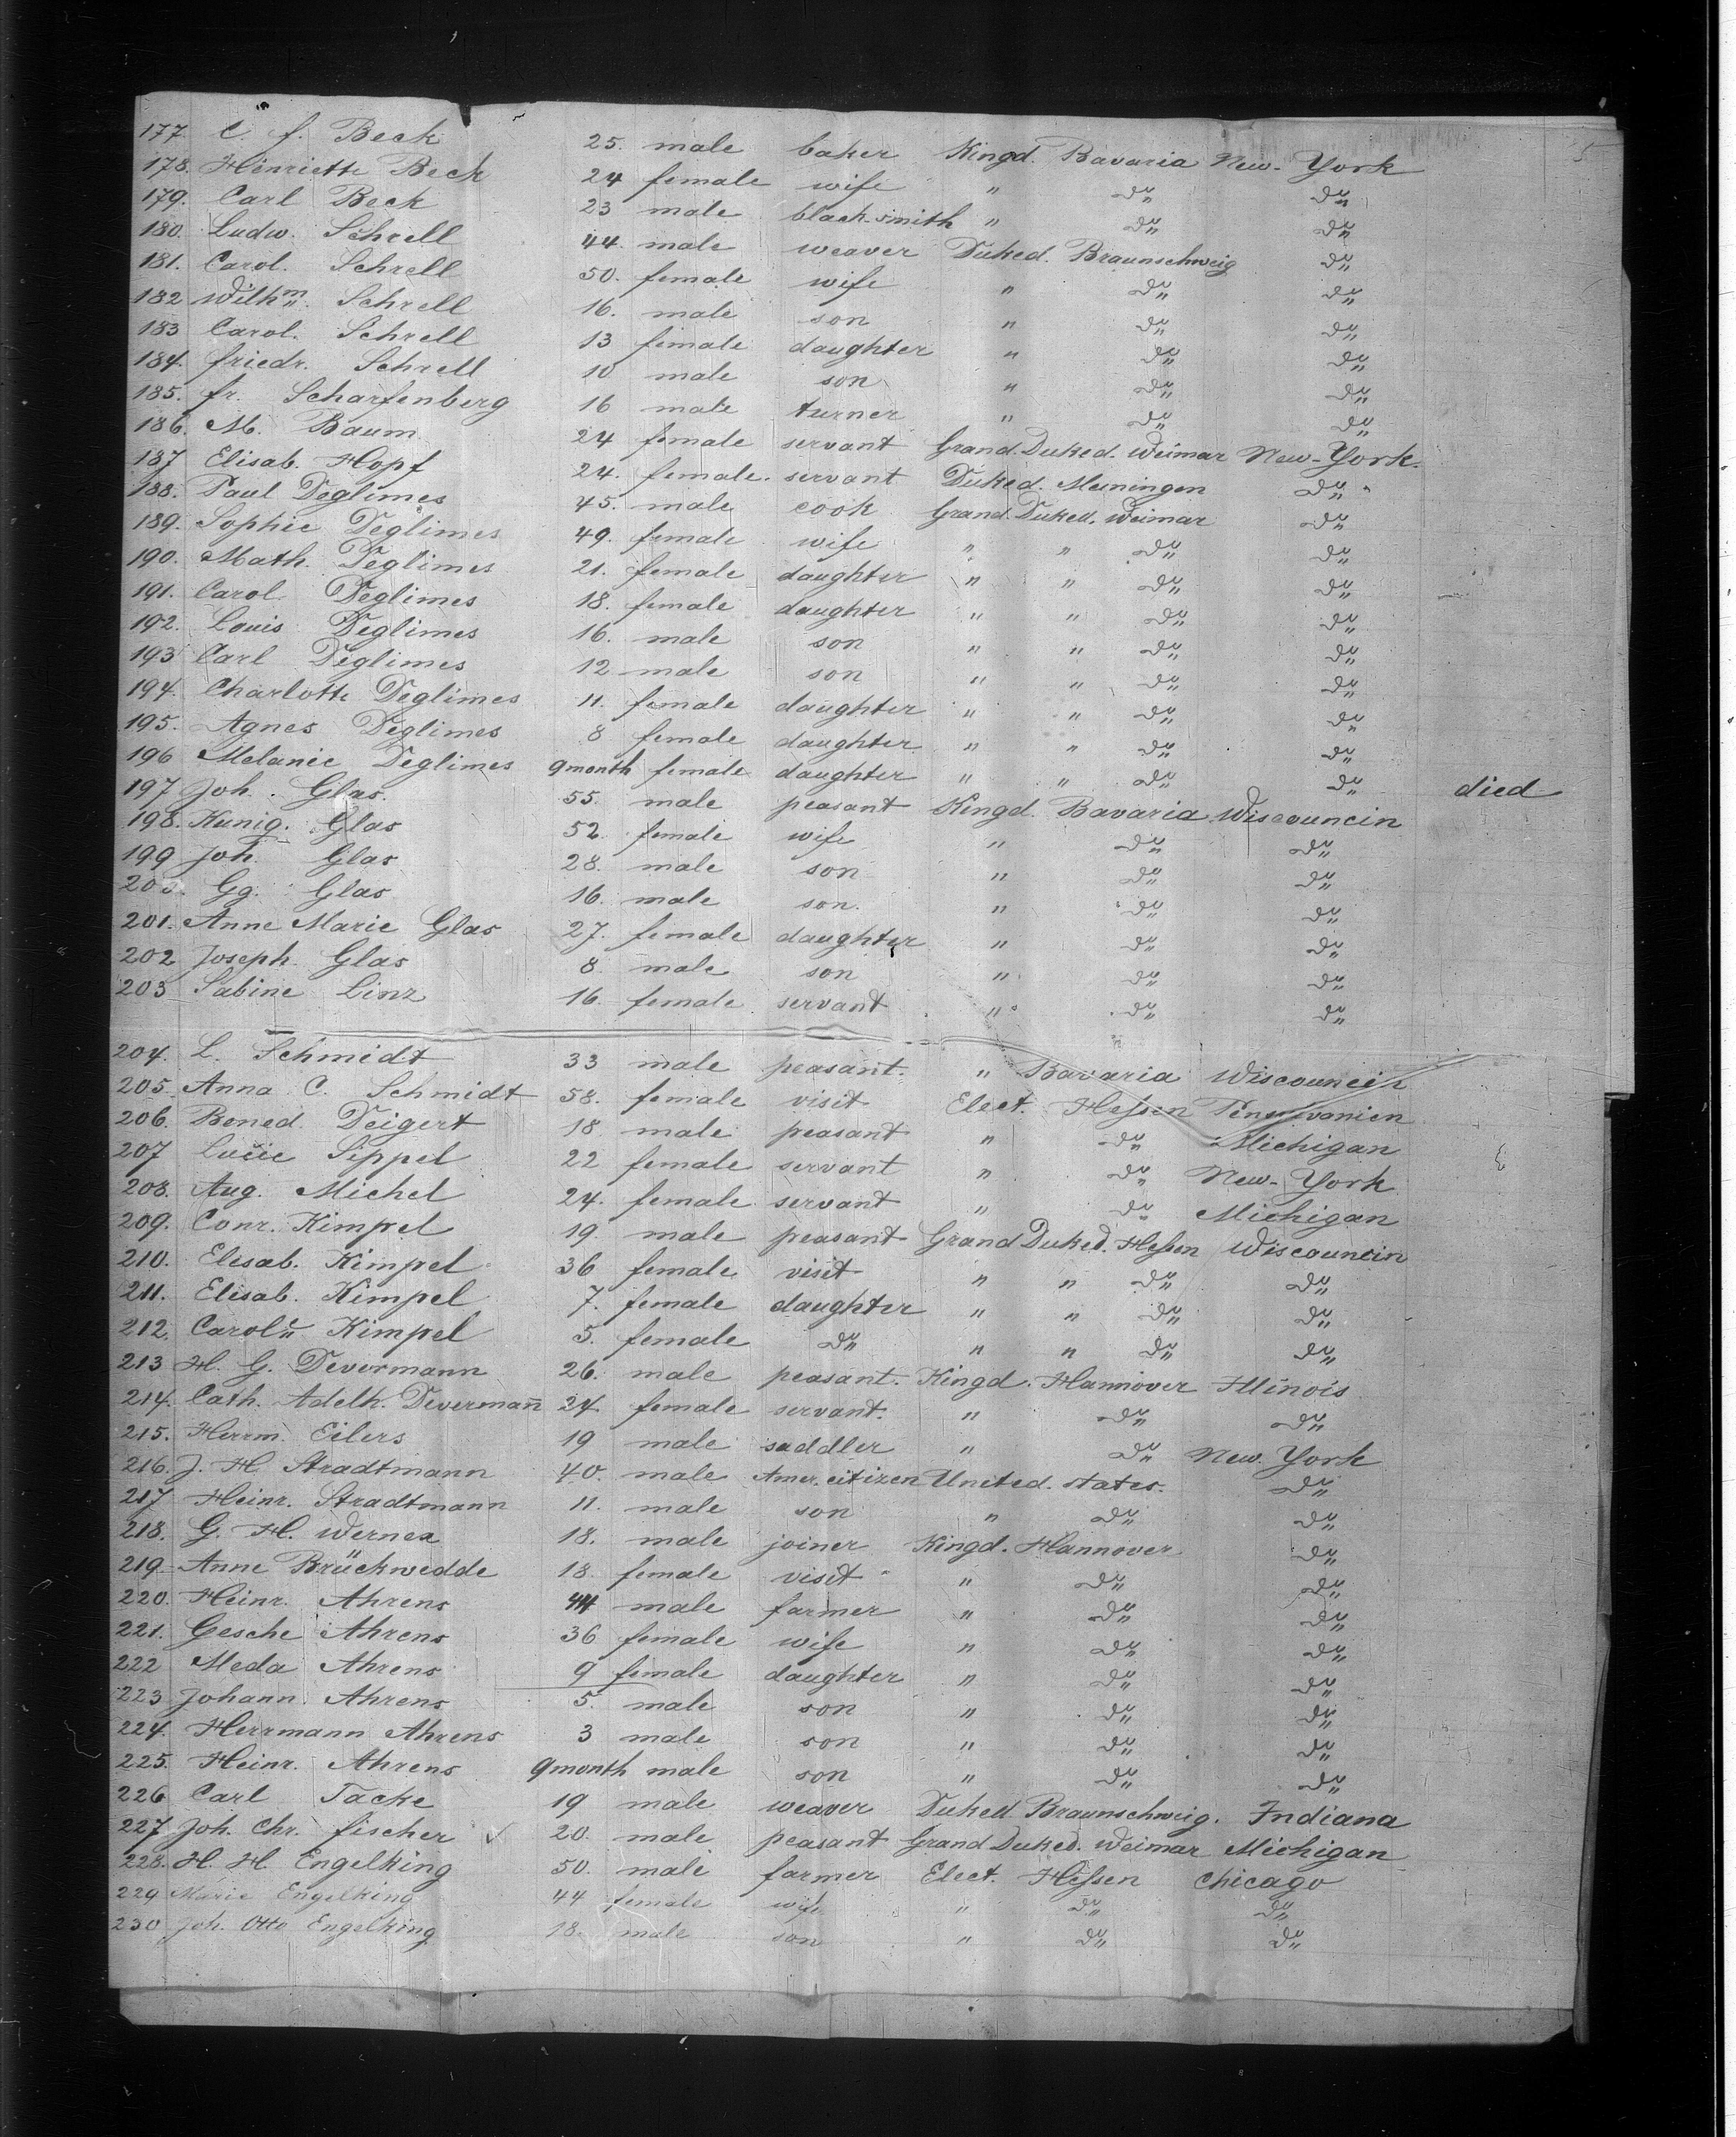 5
177. C. f. Beck 25. male baker Kingd. Bavaria New-York
178. Henriette Beck 24 female wife " do" do"
179. Carl Beck 23 male black smith " do" do"
180. Ludw. Schrell 44. male weaver Duked. Braunschweig do"
181. Carol. Schrell 50. female wife " do" do"
182 Wilhm. Schrell 16. male son " do" do"
183 Carol. Schrell 13 female daughter " do" do"
184. friedr. Schrell 10 male son " do" do"
185. fr. Scharfenberg 16 male turner " do" do"
186. M. Baum 24 female servant Grand.Duked. Weimar New-York.
187 Elisab. Hopf 24. female. servant Duked. Meiningen do"
188. Paul Deglimes 45. male cook Grand.Duked. Weimar do"
189. Sophie Deglimes 49. female wife " " do" do"
190. Math. Deglimes 21. female daughter " " do" do"
191. Carol. Deglimes 18. female daughter " " do" do"
192. Louis Deglimes 16. male son " " do" do"
193 Carl Deglimes 12 male son " " do" do"
194. Charlotte Deglimes 11. female daughter " " do" do"
195. Agnes Deglimes 8 female daughter " " do" do"
196 Melanie Deglimes 9month female daughter " " do" do" died
197 Joh. Glas. 55. male peasant Kingd. Bavaria Wiscouncin
198. Kunig. Glas 52. female wife " do" do"
199 Joh. Glas 28. male son " do" do"
200. Gg. Glas 16. male son. " do" do"
201. Anne Marie Glas 27. female daughter " do" do"
202 Joseph. Glas 8. male son " do" do"
203 Sabine Linz 16. female servant " do" do"
204. L. Schmidt 33 male peasant. " Bavaria Wiscouncin
205. Anna C. Schmidt 58. female visit Elect. Hessen Pensylvanien
206. Bened. Deigert 18 male peasant " do" Michigan
207 Lucie Seppel 22 female servant " do" New-York
208. Aug. Michel 24. female servant " do" Michigan
209. Conr. Kimpel 19. male peasant Grand Duked. Hessen Wiscouncin
210. Elesab. Kimpel 36 female visit " " do" do"
211. Elisab. Kimpel 7. female daughter " " do" do"
212. Carol" Kimpel 5. female do" " " do" do"
213 H. G. Devermann 26. male peasant. Kingd. Hannover Illinois
214. Cath. Adelh. Devermañ 24 female servant. " do" do"
215. Herrm. Eilers 19 male saddler " do" New York
216. J. H. Stradtmann 40. male Amer. citizen United. states. do"
217 Heinr. Stradtmann 11. male son " do" do"
218. G. H. Wernex 18. male joiner Kingd. Hannover do"
219. Anne Brückwedde 18. female visit " do" do"
220. Heinr. Ahrens 44 male farmer " do" do"
221. Gesche Ahrens 36 female wife " do" do"
222 Meda Ahrens 9 female daughter " do" do"
223 Johann. Ahrens 5. male son " do" do"
224. Herrmann Ahrens 3 male son " do" do"
225. Heinr. Ahrens 9month male son " do" do"
226 Carl Tacke 19 male weaver Duked. Braunschweig. Indiana
227 Joh. Chr. fischer 20. male peasant Grand Duked. Weimar Michigan
228. H. H. Engelking 50. male farmer Elect. Hessen Chicago
229 Marie Engelking 44 female wife " do" do"
230 Joh. Otto Engelking 18. male son " do" do"